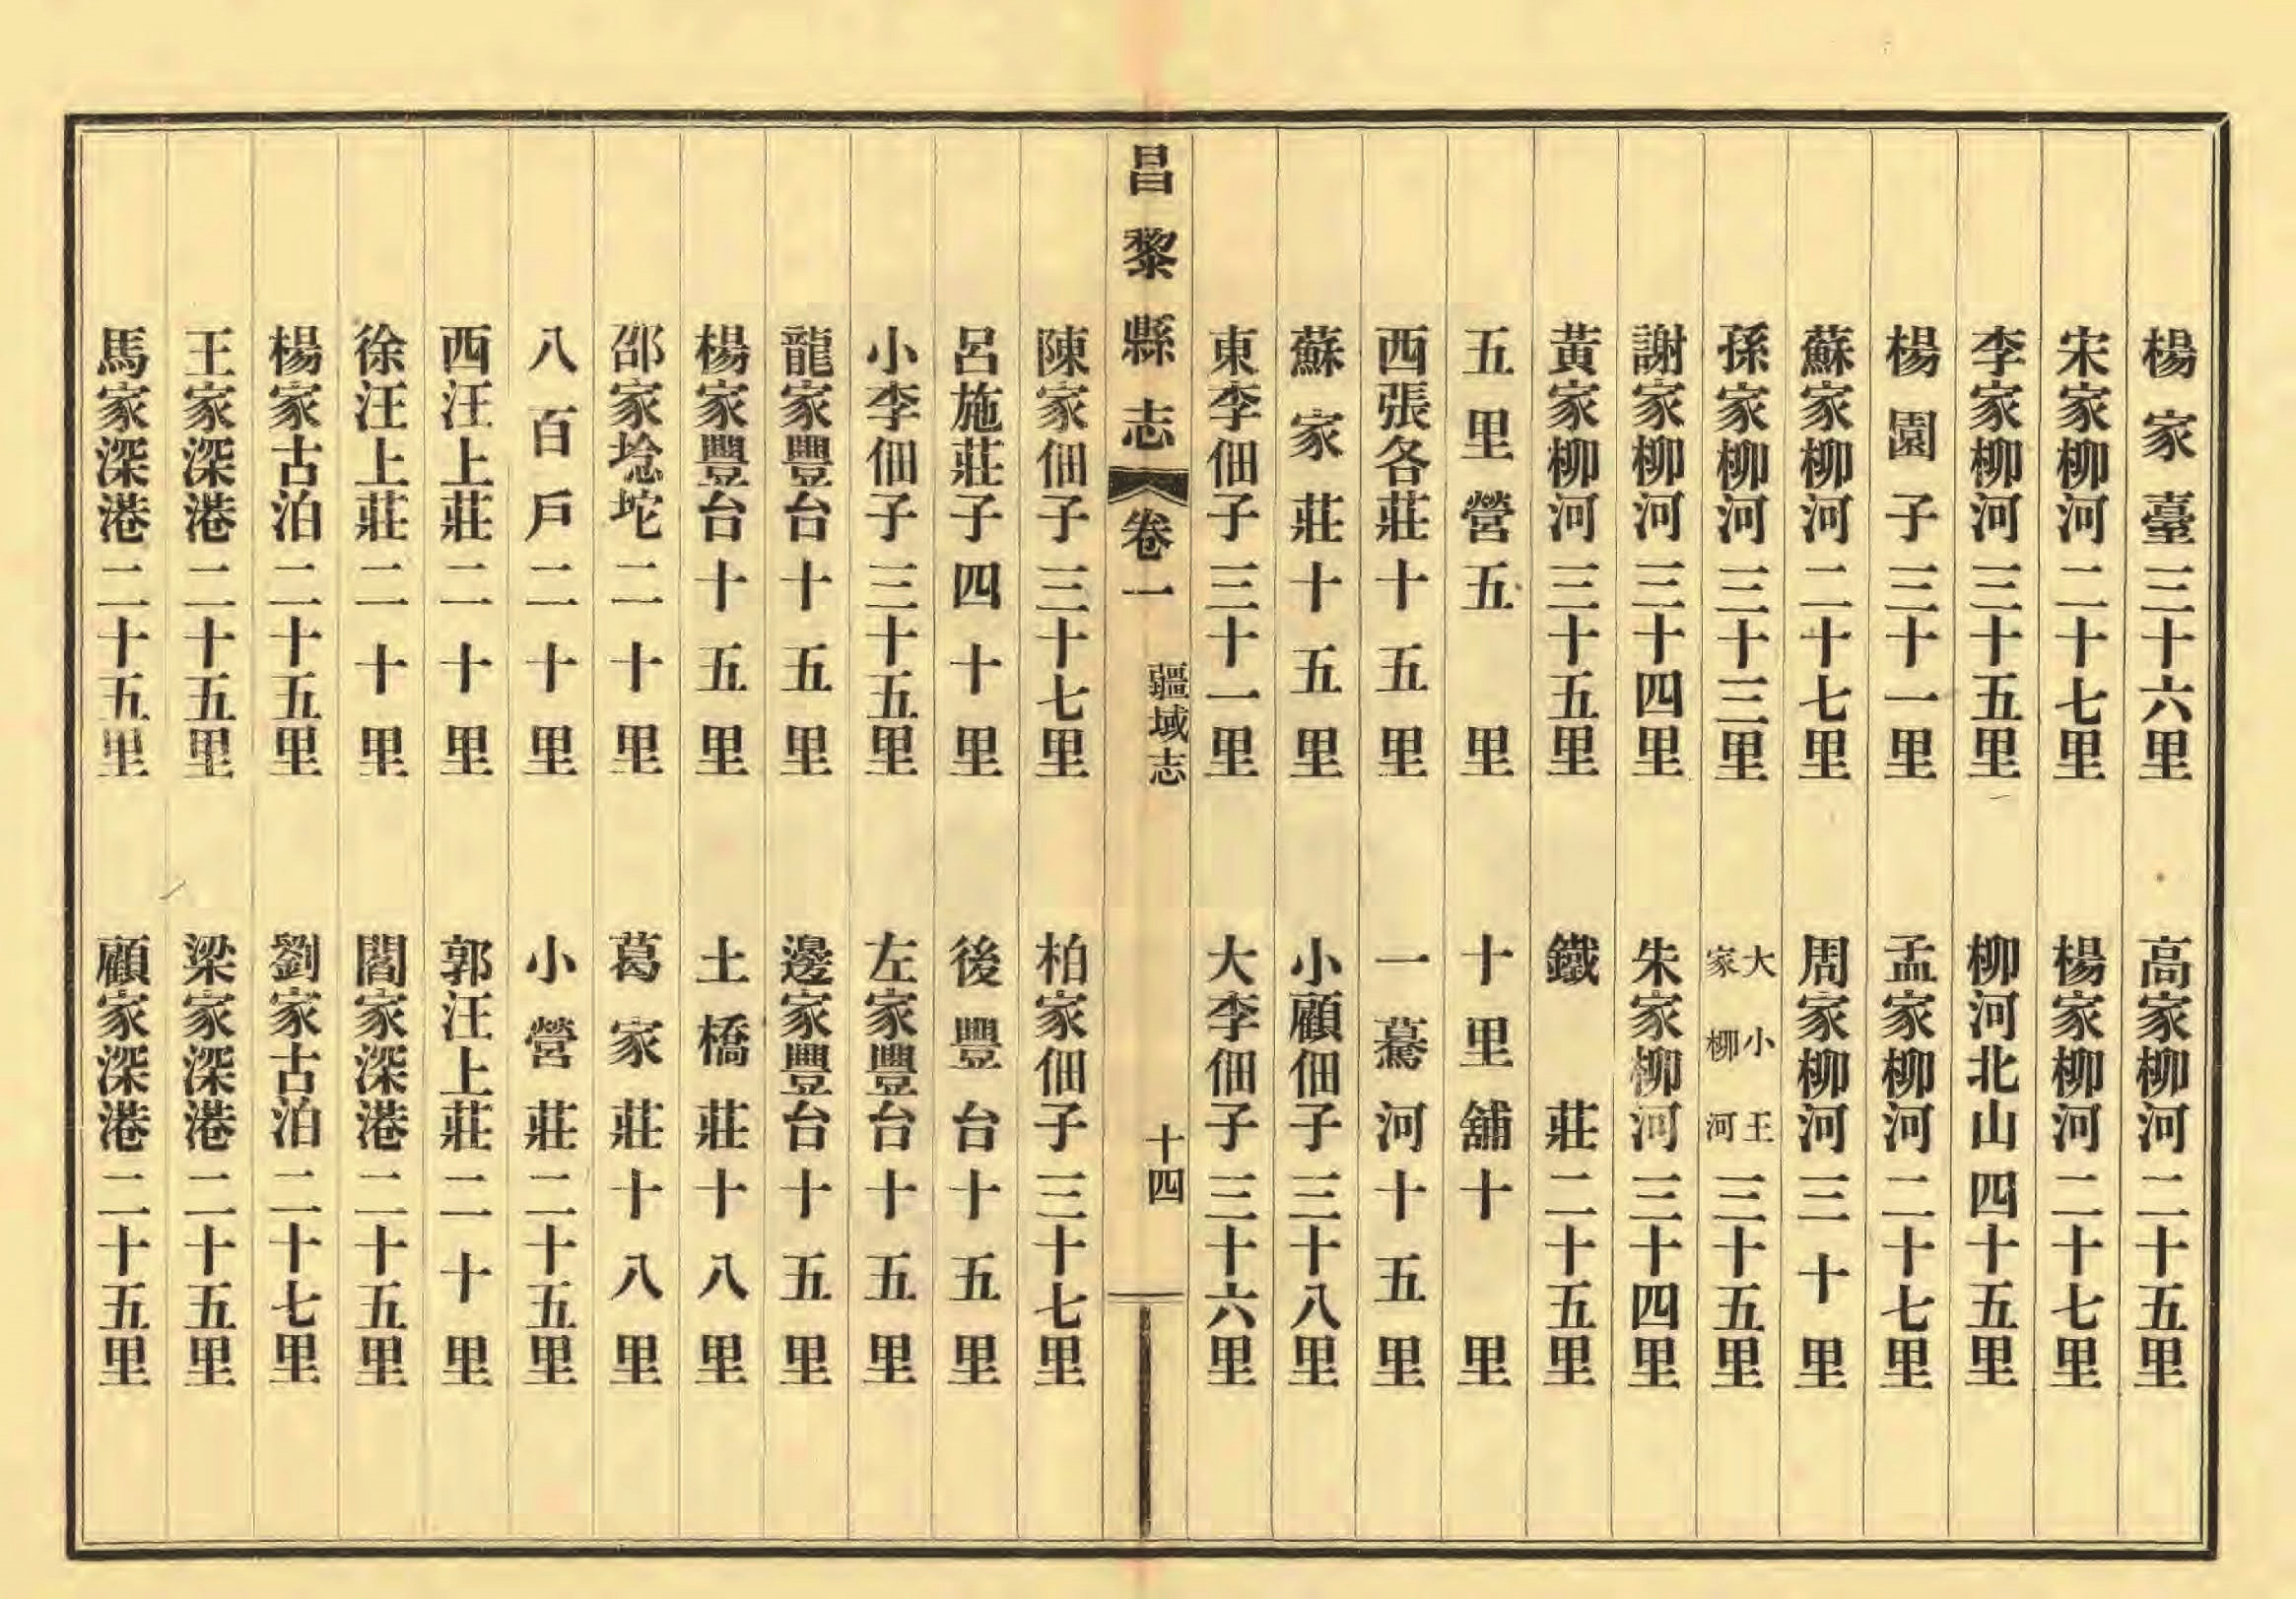 楊家臺三十六里　高家柳河二十五里
宋家柳河二十七里　楊家柳河二十七里
李家柳河三十五里　柳河北山四十五里
楊園子三十一里　孟家柳河二十七里
蘇家柳河二十七里　周家柳河三十里
孫家柳河三十三里　大小王家柳河三十五里
謝家柳河三十四里　朱家柳河三十四里
黃家柳河三十五里　鐵莊二十五里
五里營五里　十里舖十里
西張各莊十五里　一驀河十五里
蘇家莊十五里　小顧佃子三十八里
東李佃子三十一里　大李佃子三十六里
昌黎縣志　卷一　疆域志　十四
陳家佃子三十七里　柏家佃子三十七里
呂施莊子四十里　後豐台十五里
小李佃子三十五里　左家豐台十五里
龍家豐台十五里　邊家豐台十五里
楊家豐台十五里　土橋莊十八里
邵家埝坨二十里　葛家莊十八里
八百戶二十里　小營莊二十五里
西汪上莊二十里　郭汪上莊二十里
徐汪上莊二十里　閻家深港二十五里
楊家古泊二十五里　劉家古泊二十七里
王家深港二十五里　梁家深港二十五里
馬家深港二十五里　顧家深港二十五里